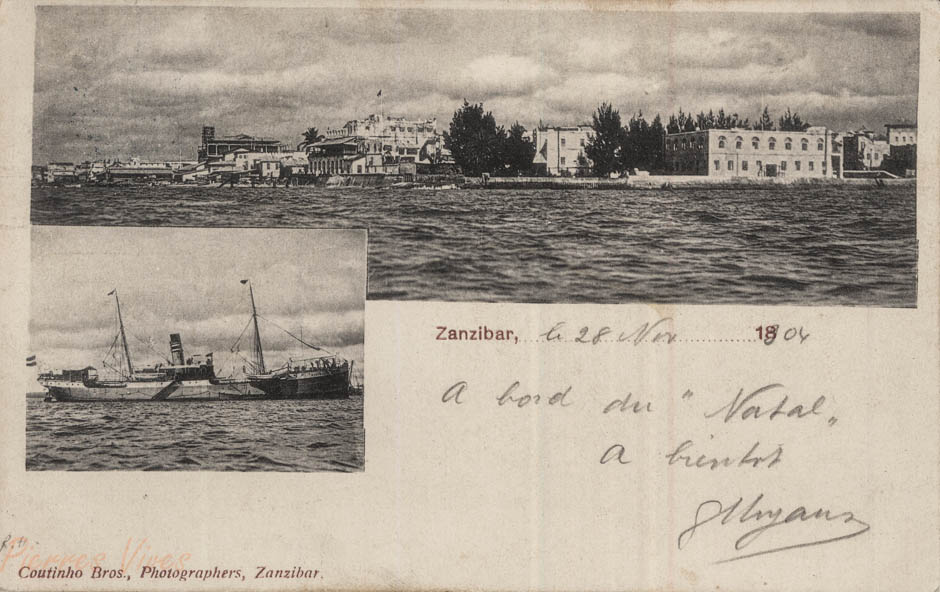 Zanzibar, le 28 Nov 1904
A bord du "Natal"
A bientot
Pierres Vives
Coutinho Bros., Photographers, Zanzibar.